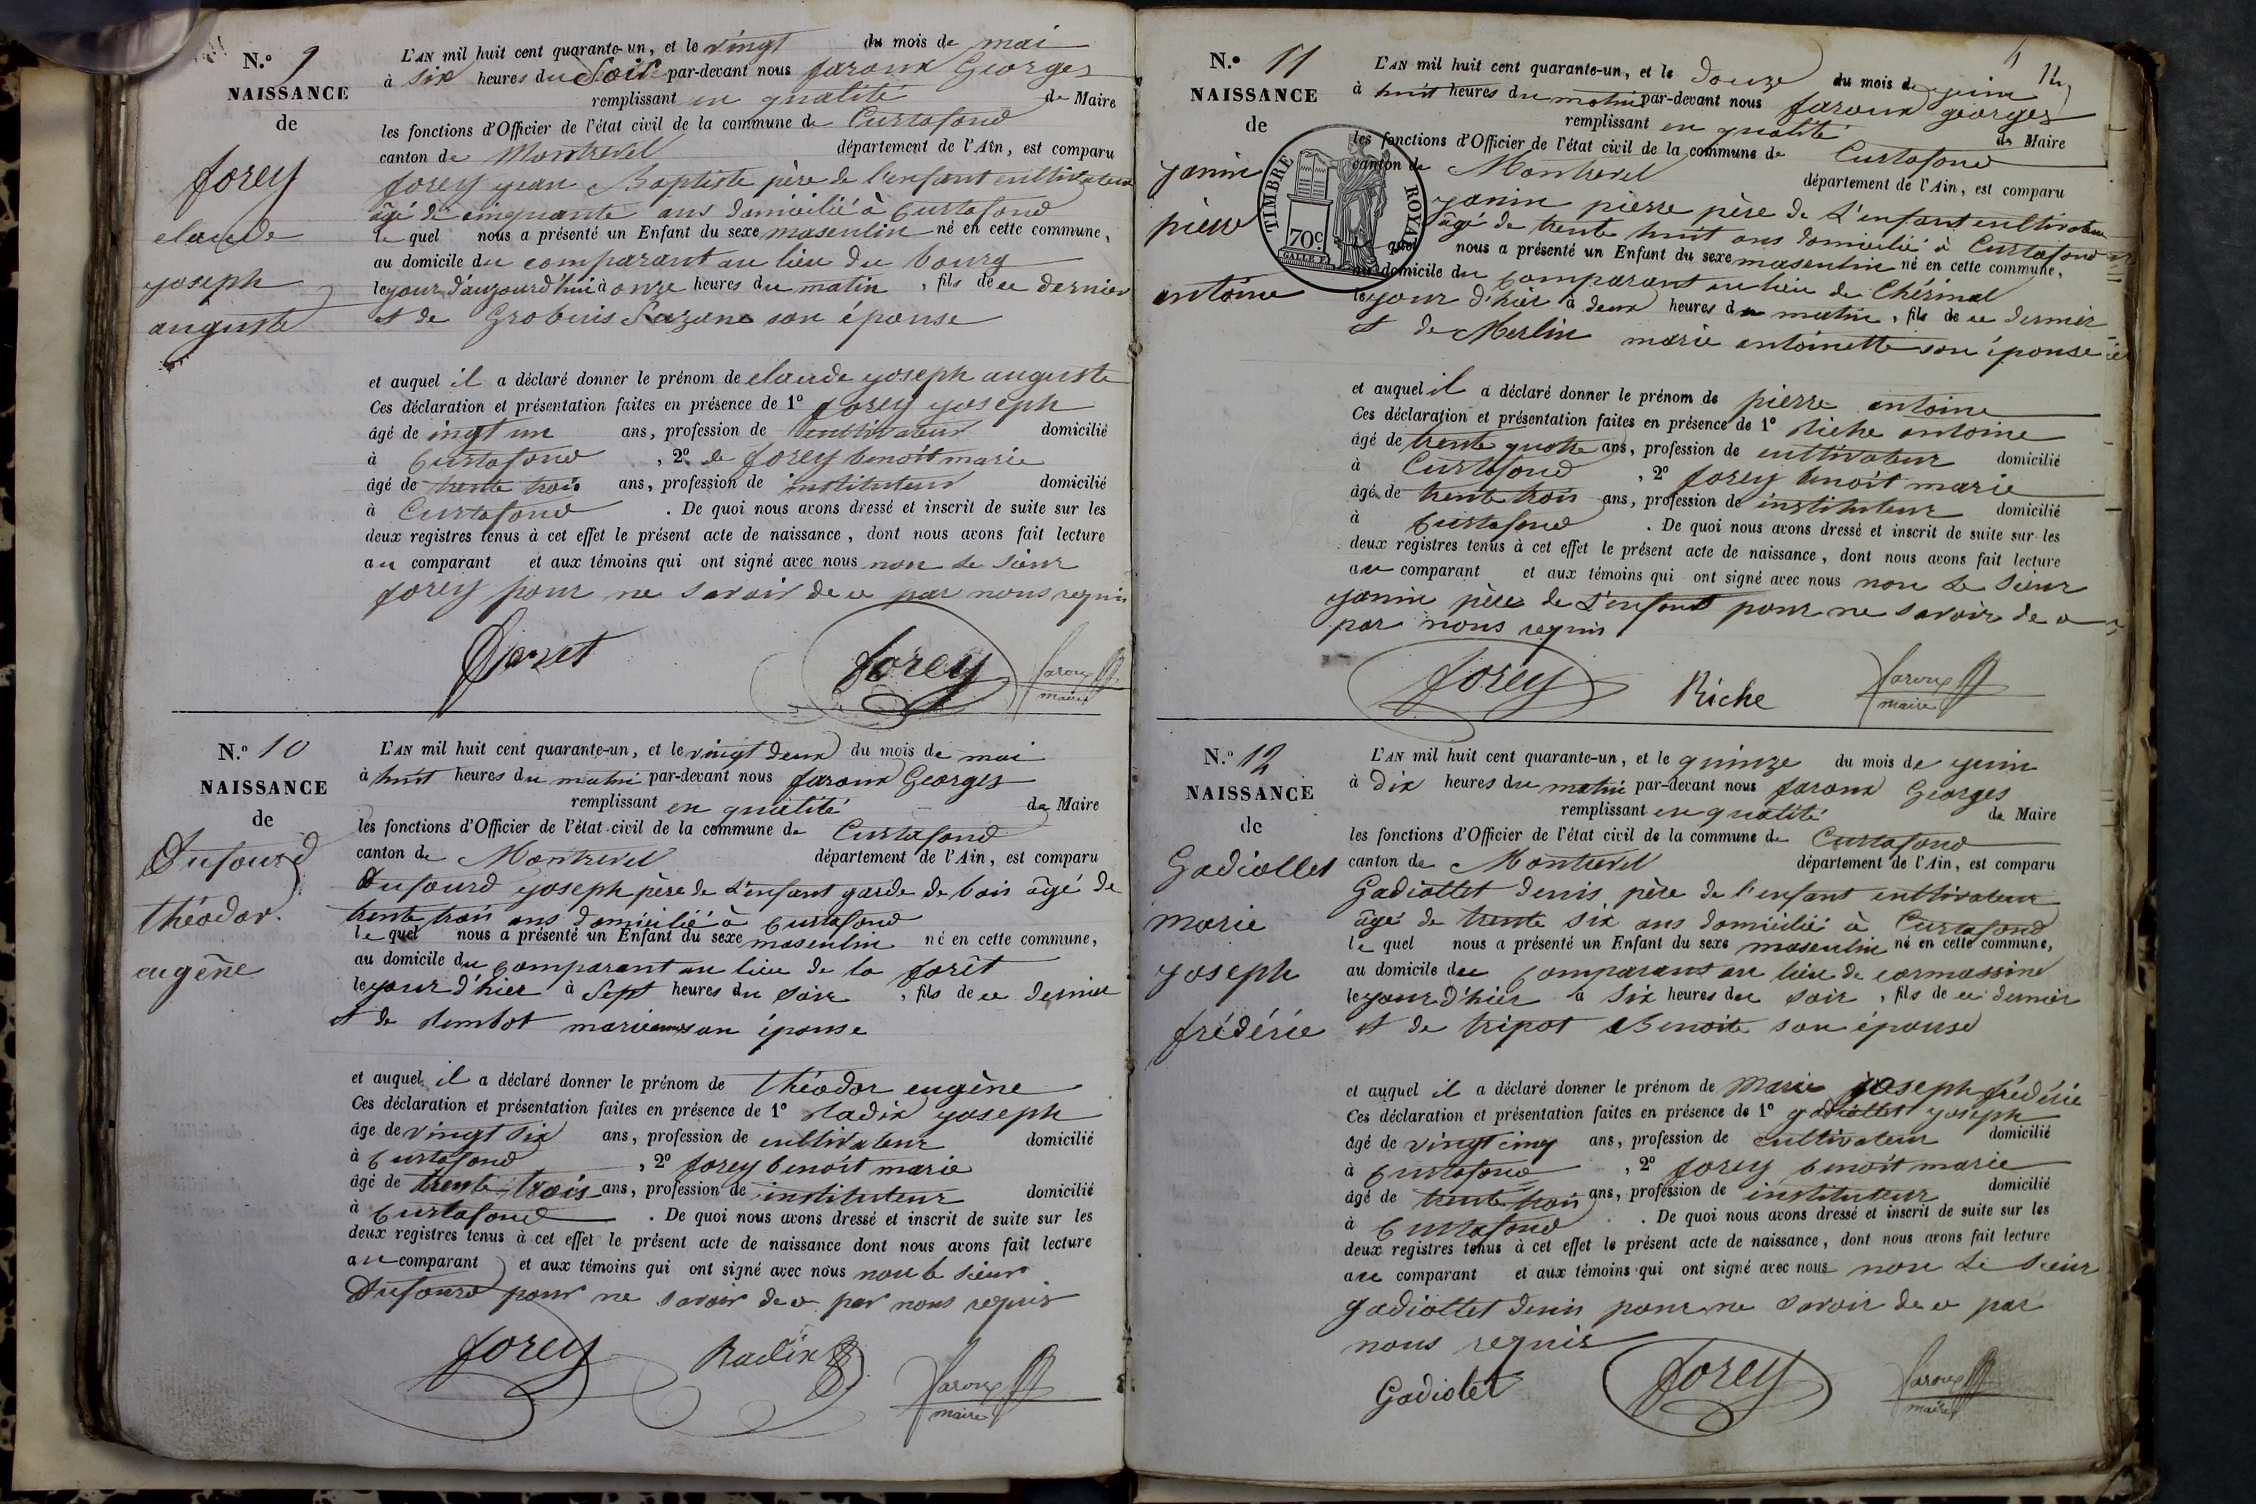 N.º 9
NAISSANCE
de
forey
claude
joseph
auguste
L'AN mil huit cent quarante-un, et le vingt du mois de mai
à six heures du soir par-devant nous faroux Georges
remplissant en qualité de Maire
les fonctions d'Officier de l'état civil de la commune de Curtafond
canton de Montrevel département de l'Ain, est comparu
forey jean Baptiste père de l'enfant cultivateur
âgé de cinquante ans domicilié à Curtafond
le quel nous a présenté un Enfant du sexe masculin né en cette commune,
au domicile du comparant au lieu du bourg
le jour d'aujourd'hui à onze heures du matin, fils de ce dernier
et de son épouse
et auquel il a déclaré donner le prénom de claude joseph auguste
Ces déclaration et présentation faites en présence de 1º forey joseph
âgé de vingt un ans, profession de cultivateur domicilié
à Curtafond, 2º le forey benoit marie
âgé de trente trois ans, profession de instituteur domicilié
à Curtafond. De quoi nous avons dressé et inscrit de suite sur les
deux registres tenus à cet effet le présent acte de naissance, dont nous avons fait lecture
au comparant et aux témoins qui ont signé avec nous non le sieur
forey pour ne savoir de ce par nous requis
forey faroux
maire
N.º 10
NAISSANCE
de
Dufourd
théodor
eugène
L'AN mil huit cent quarante-un, et le vingt deux du mois de mai
à huit heures du matin par-devant nous faroux Georges
remplissant en qualité de Maire
les fonctions d'Officier de l'état civil de la commune de Curtafond
canton de Montrevel département de l'Ain, est comparu
Dufourd joseph père de l'enfant garde de bois âgé de
trente trois ans domicilié à Curtafond
le quel nous a présenté un Enfant du sexe masculin né en cette commune,
au domicile du comparant au lieu de la forêt
le jour d'hier à sept heures du soir, fils de ce dernier
et de marie son épouse
et auquel il a déclaré donner le prénom de théodor eugène
Ces déclaration et présentation faites en présence de 1º Radix joseph
âgé de vingt six ans, profession de cultivateur domicilié
à Curtafond, 2º forey benoit marie
âgé de trente trois ans, profession de instituteur domicilié
à Curtafond. De quoi nous avons dressé et inscrit de suite sur les
deux registres tenus à cet effet le présent acte de naissance dont nous avons fait lecture
au comparant et aux témoins qui ont signé avec nous non le sieur
Dufourd pour ne savoir de ce par nous requis
forey Radix faroux
maire
14
N.º 11
NAISSANCE
de
janin
pierre
antoine
TIMBRE ROYAL
70 c
L'AN mil huit cent quarante-un, et le douze du mois de juin
à huit heures du matin par-devant nous faroux georges
remplissant en qualité de Maire
les fonctions d'Officier de l'état civil de la commune de Curtafond
canton de Montrevel département de l'Ain, est comparu
janin pierre père de l'enfant cultivateur
âgé de trente huit ans domicilié à Curtafond
le quel nous a présenté un Enfant du sexe masculin né en cette commune,
au domicile du comparant au lieu de Chérinal
le jour d'hier à deux heures du matin, fils de ce dernier
et de Merlin marie antoinette son épouse
et auquel il a déclaré donner le prénom de pierre antoine
Ces déclaration et présentation faites en présence de 1º riche antoine
âgé de trente quatre ans, profession de cultivateur domicilié
à Curtafond, 2º forey benoit marie
âgé de trente trois ans, profession de instituteur domicilié
à Curtafond. De quoi nous avons dressé et inscrit de suite sur les
deux registres tenus à cet effet le présent acte de naissance, dont nous avons fait lecture
au comparant et aux témoins qui ont signé avec nous non le sieur
janin père de l'enfant pour ne savoir de ce
par nous requis
forey Riche faroux
maire
N.º 12
NAISSANCE
de
Gadiollet
marie
joseph
frédéric
L'AN mil huit cent quarante-un, et le quinze du mois de juin
à dix heures du matin par-devant nous faroux Georges
remplissant en qualité de Maire
les fonctions d'Officier de l'état civil de la commune de Curtafond
canton de Montrevel département de l'Ain, est comparu
Gadiollet denis père de l'enfant cultivateur
âgé de trente six ans domicilié à Curtafond
le quel nous a présenté un Enfant du sexe masculin né en cette commune,
au domicile du comparant au lieu de cormassine
le jour d'hier à six heures du soir, fils de ce dernier
et de tripot Benoite son épouse
et auquel il a déclaré donner le prénom de marie joseph frédéric
Ces déclaration et présentation faites en présence de 1º gadiollet joseph
âgé de vingt cinq ans, profession de cultivateur domicilié
à Curtafond, 2º forey benoit marie
âgé de trente trois ans, profession de instituteur domicilié
à Curtafond. De quoi nous avons dressé et inscrit de suite sur les
deux registres tenus à cet effet le présent acte de naissance, dont nous avons fait lecture
au comparant et aux témoins qui ont signé avec nous non le sieur
gadiollet denis pour ne savoir de ce par
nous requis
Gadiolet forey faroux
maire